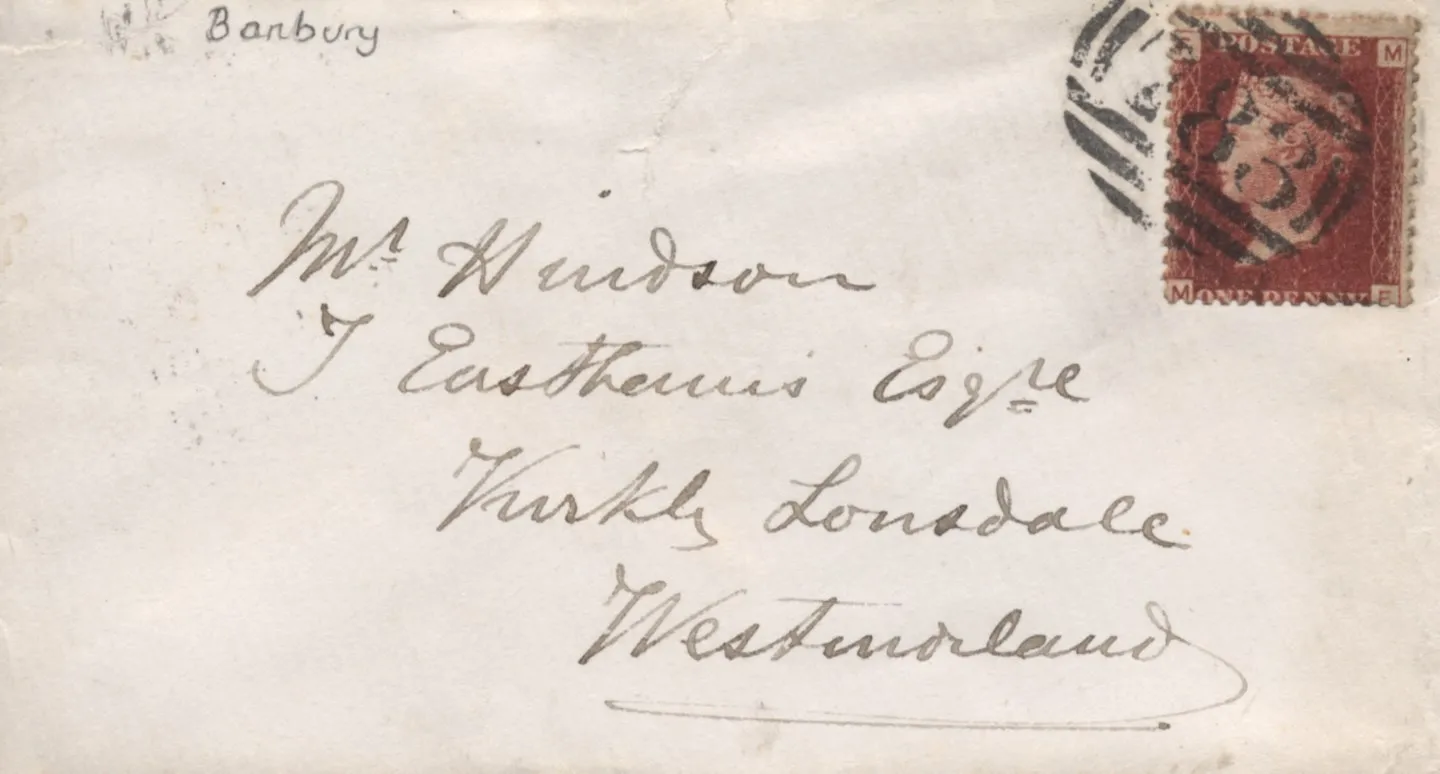 Banbury
POSTAGE
M
38
M ONE PENNY E
Mr Hindson
T Easthams Esqre
Kirkby Lonsdale
Westmorland